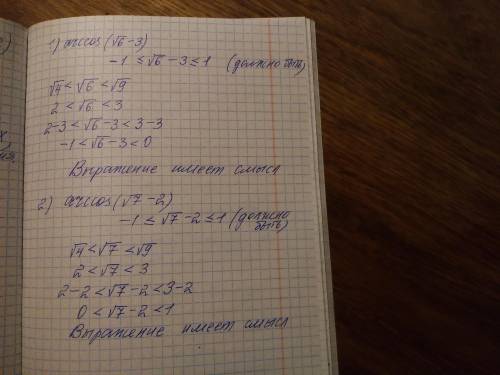 1) arccos (√6-3)
-1 ≤ √6 - 3 ≤ 1 (должно быть)
√4 < √6 < √9
2 < √6 < 3
2-3 < √6-3 < 3-3
-1 < √6-3 < 0
Выражение имеет смысл
2) arccos (√7-2)
-1 ≤ √7-2 ≤ 1 (должно быть)
√4 < √7 < √9
2 < √7 < 3
2-2 < √7-2 < 3-2
0 < √7-2 < 1
Выражение имеет смысл